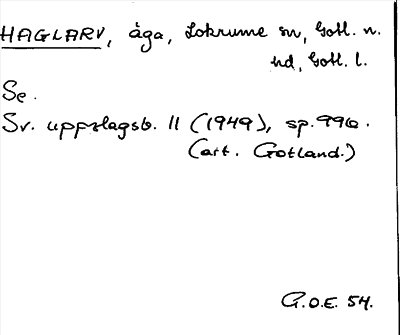 HAGLARV, äga, Lokrume sn, Gotl. n.
hd, Gotl. l.
Se.
Sv. uppslagsb. 11 (1949), sp. 990.
(art. Gotland.)
G.O.E. 54.